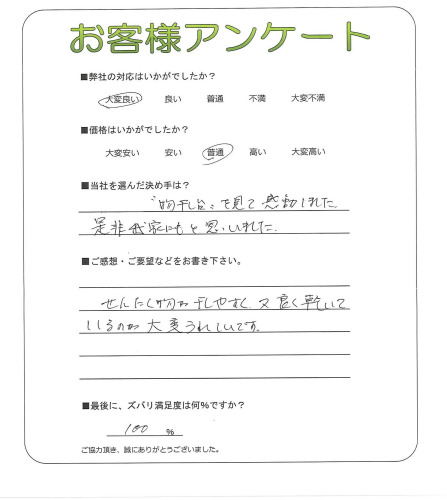 お客様アンケート
■弊社の対応はいかがでしたか？
大変良い 良い 普通 不満 大変不満
■価格はいかがでしたか？
大変安い 安い 普通 高い 大変高い
■当社を選んだ決め手は？
〝物干し台〟を見て感動しました
是非我家にもと思いました。
■ご感想・ご要望などをお書き下さい。
せんたく物が干しやすく 又良く乾いて
いるのが大変うれしいです。
■最後に、ズバリ満足度は何％ですか？
100 ％
ご協力頂き、誠にありがとうございました。